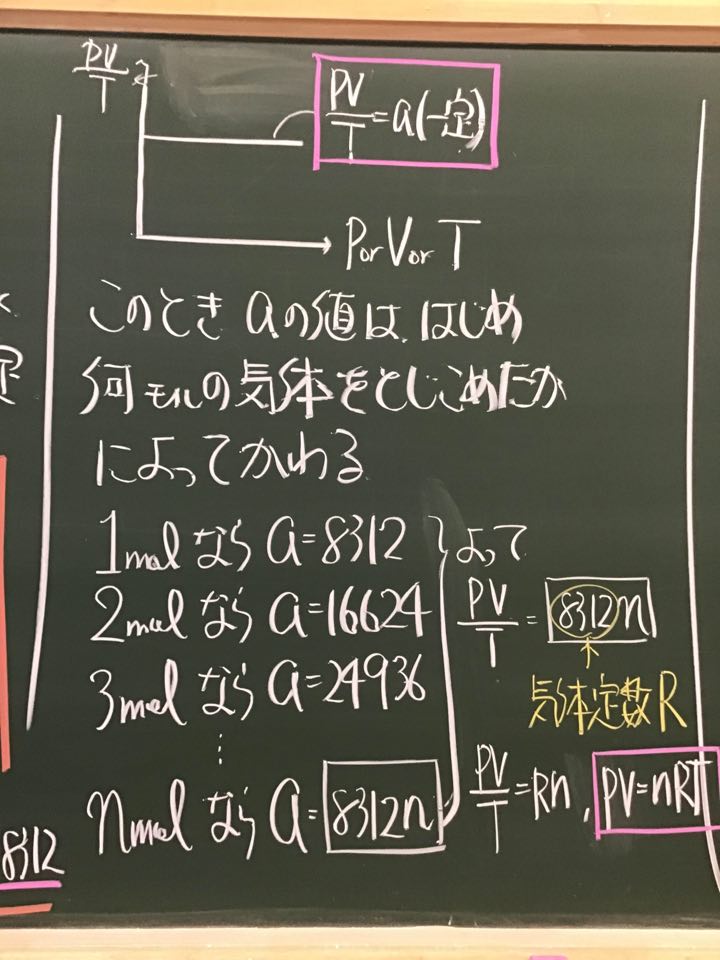 PV/T
PV/T=a(一定)
PorVorT
このとき aの値は、はじめ
何モルの気体をとじこめたか
によってかわる
1molなら a=8312
2molなら a=16624
3molなら a=24936
⋮
nmolなら a=8312n
よって
PV/T=8312n
↑
気体定数R
PV/T=Rn, PV=nRT
8312